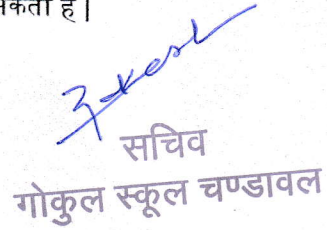 है।
सचिव
गोकुल स्कूल चण्डावल